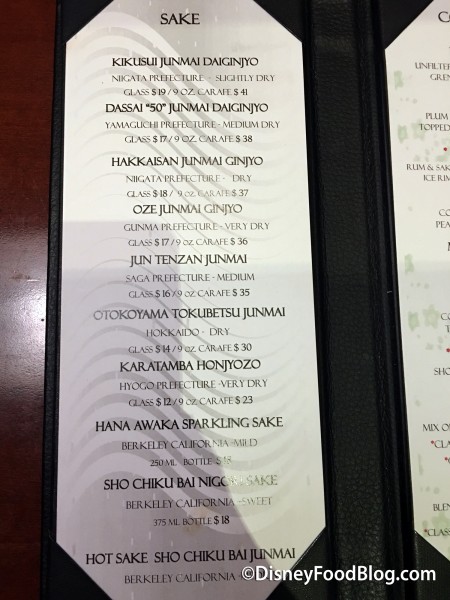 SAKE
KIKUSUI JUNMAI DAIGINJYO
NIIGATA PREFECTURE - SLIGHTLY DRY
GLASS $ 19 / 9 OZ. CARAFE $ 41
DASSAI "50" JUNMAI DAIGINJYO
YAMAGUCHI PREFECTURE - MEDIUM DRY
GLASS $ 17 / 9 OZ. CARAFE $ 38
HAKKAISAN JUNMAI GINJYO
NIIGATA PREFECTURE - DRY
GLASS $ 18 / 9 OZ. CARAFE $ 37
OZE JUNMAI GINJYO
GUNMA PREFECTURE - VERY DRY
GLASS $ 17 / 9 OZ. CARAFE $ 36
JUN TENZAN JUNMAI
SAGA PREFECTURE - MEDIUM
GLASS $ 16 / 9 OZ. CARAFE $ 35
OTOKOYAMA TOKUBETSU JUNMAI
HOKKAIDO - DRY
GLASS $ 14 / 9 OZ. CARAFE $ 30
KARATAMBA HONJYOZO
HYOGO PREFECTURE -VERY DRY
GLASS $ 12 / 9 OZ. CARAFE $ 23
HANA AWAKA SPARKLING SAKE
BERKELEY CALIFORNIA -MILD
250 ML BOTTLE $
SHO CHIKU BAI SAKE
BERKELEY CALIFORNIA -SWEET
375 ML BOTTLE $ 18
HOT SAKE SHO CHIKU BAI JUNMAI
BERKELEY CALIFORNIA
UNFILTER
GREN
PLUM
TOPPED
RUM & SAK
ICE RIM
CO
PEA
CO
SHO
MIX O
*CLA
BLEN
*CLASS
©DisneyFoodBlog.com